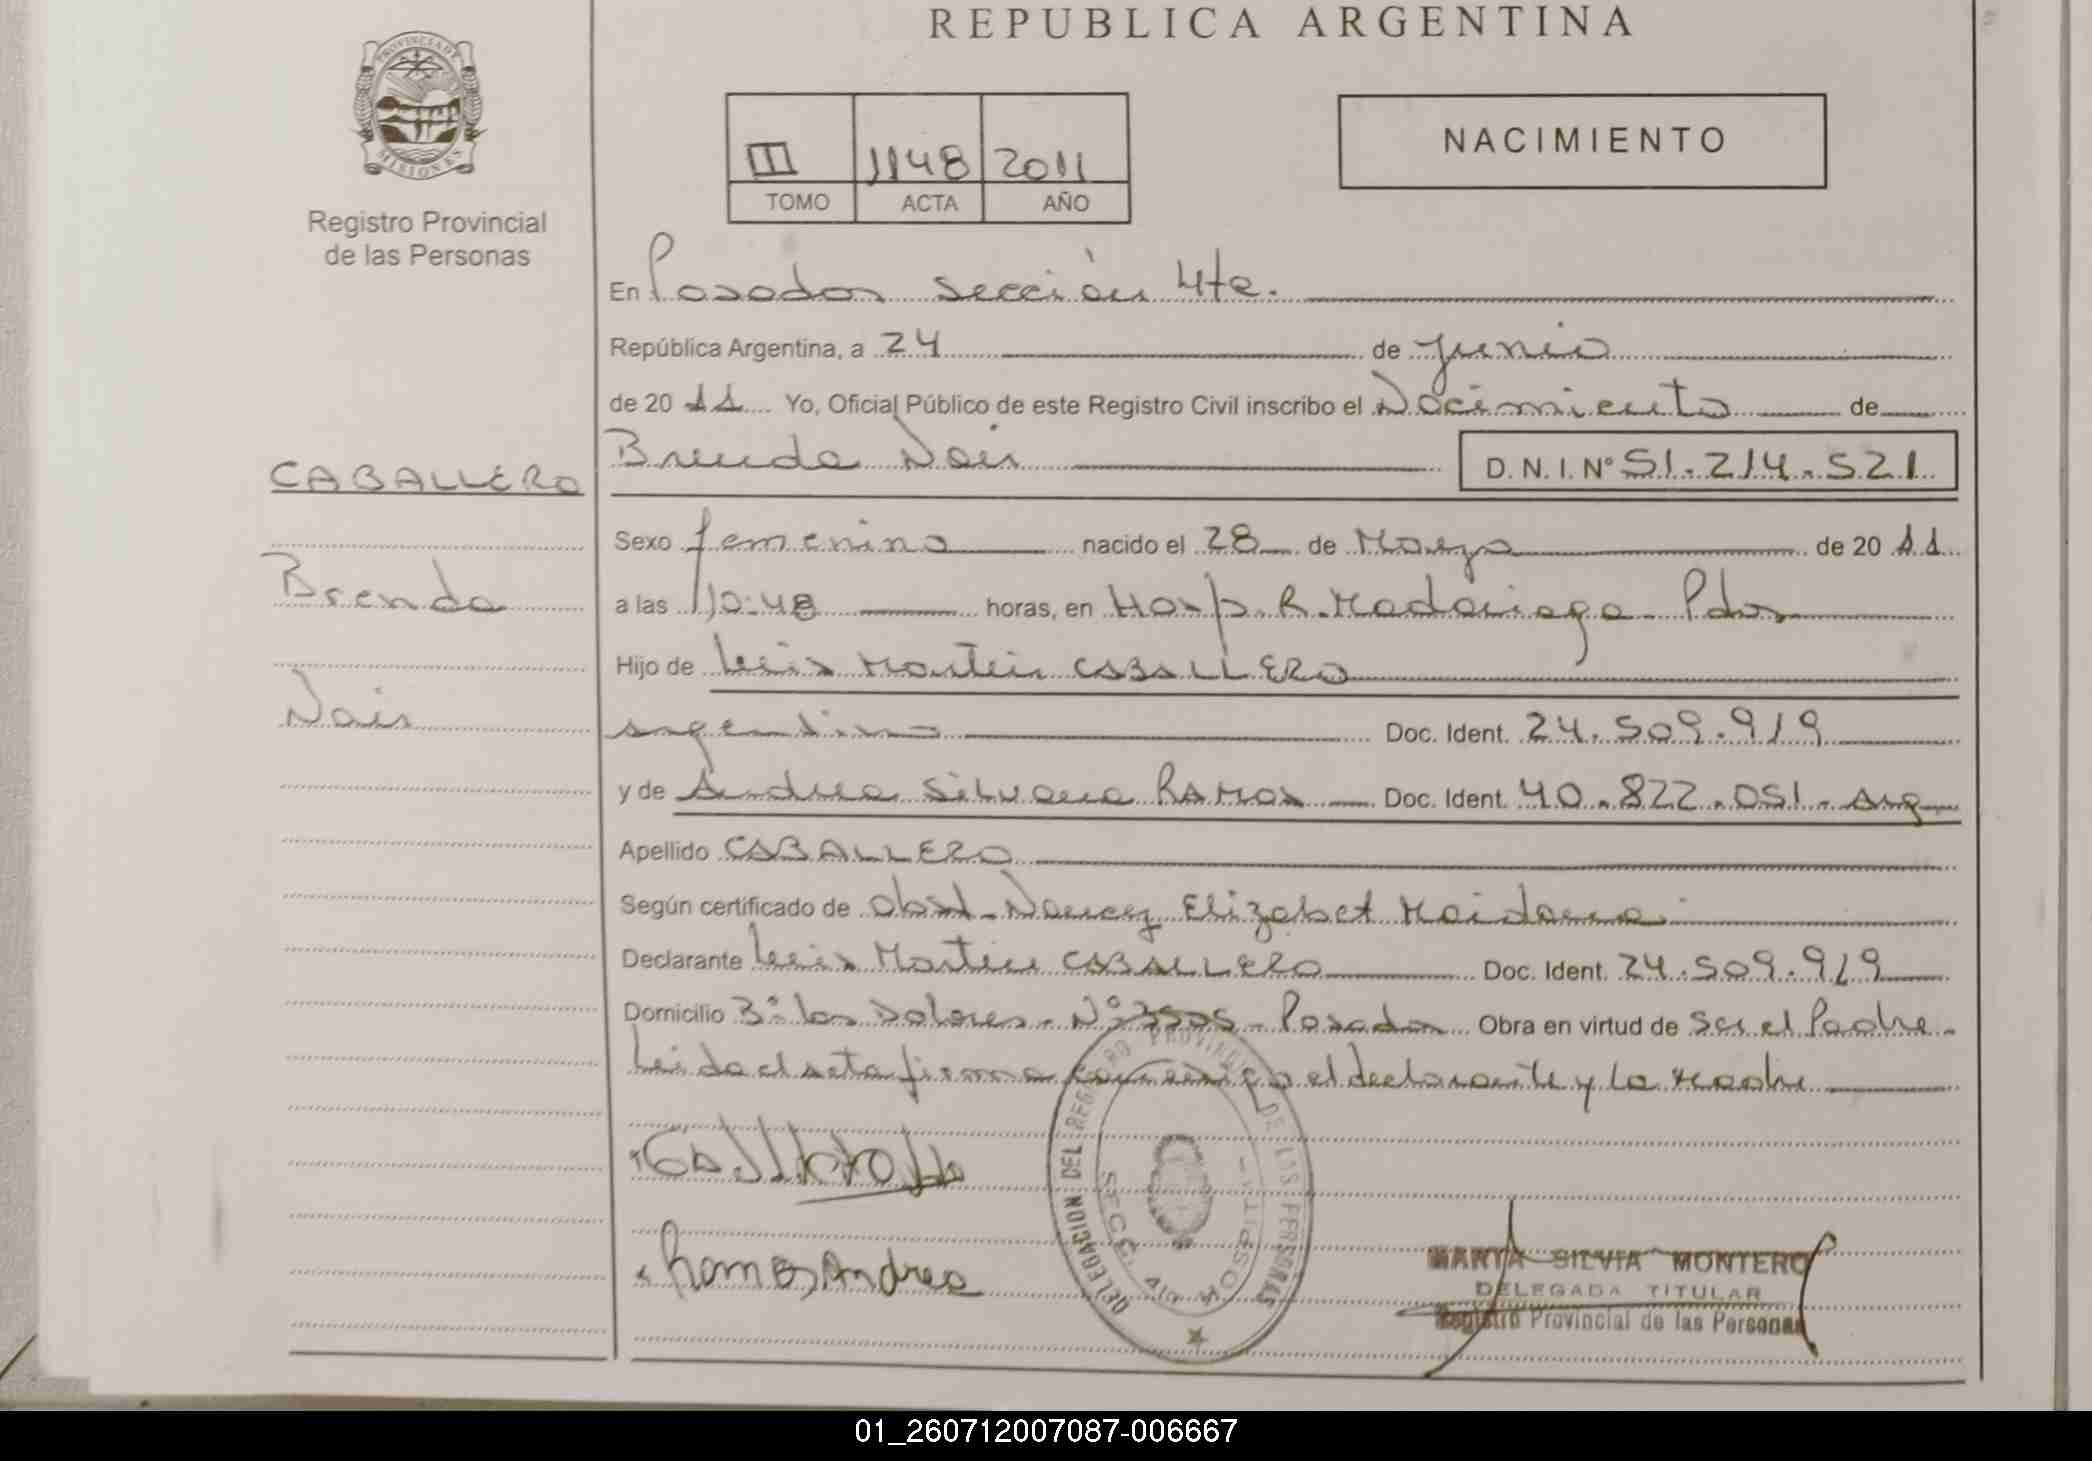 REPUBLICA ARGENTINA
PROVINCIA DE
MISIONES
Registro Provincial
de las Personas
III 1148 2011
TOMO ACTA AÑO
NACIMIENTO
En Posadas sección 4ta.
República Argentina, a 24 de junio
de 20 11 Yo, Oficial Público de este Registro Civil inscribo el Nacimiento de
Brenda Nair D. N. I. Nº 51.214.521
CABALLERO
Brenda
Nair
Sexo femenino nacido el 28 de Marzo de 20 11
a las 10:48 horas, en Hosp. R. Madariaga Pdas
Hijo de Luis Martin CABALLERO
argentino Doc. Ident. 24.509.919
y de Andrea Silvana RAMOS Doc. Ident. 40.822.051 - Arg
Apellido CABALLERO
Según certificado de Obst. Nancy Elizabet Maidana
Declarante Luis Martin CABALLERO Doc. Ident. 24.509.919
Domicilio Bº Los Dolores - Nº 3505 - Posadas Obra en virtud de ser el Padre -
Leida el acta firma conmigo el declarante y la Madre
Ramos Andrea
DELEGACION DEL REGISTRO PROVINCIAL DE LAS PERSONAS
SECC. 4ta
MARTA SILVIA MONTERO
DELEGADA TITULAR
Registro Provincial de las Personas
01_260712007087-006667